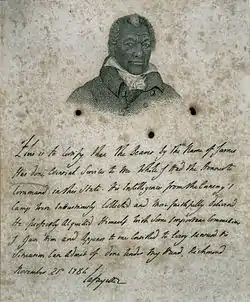 This is to Certify that the Bearer by the Name of James
Has done Essential Services to Me While I Had the Honour to
Command in this State. His Intelligences from the Enemy's
Camp were Industriously Collected and More faithfully deliver'd
He perfectly Acquitted Himself with Some Important Commissions
I Gave Him and Appears to me Entitled to Every Reward his
Situation Can Admit of. Done Under My Hand, Richmond
November 21st 1784
Lafayette